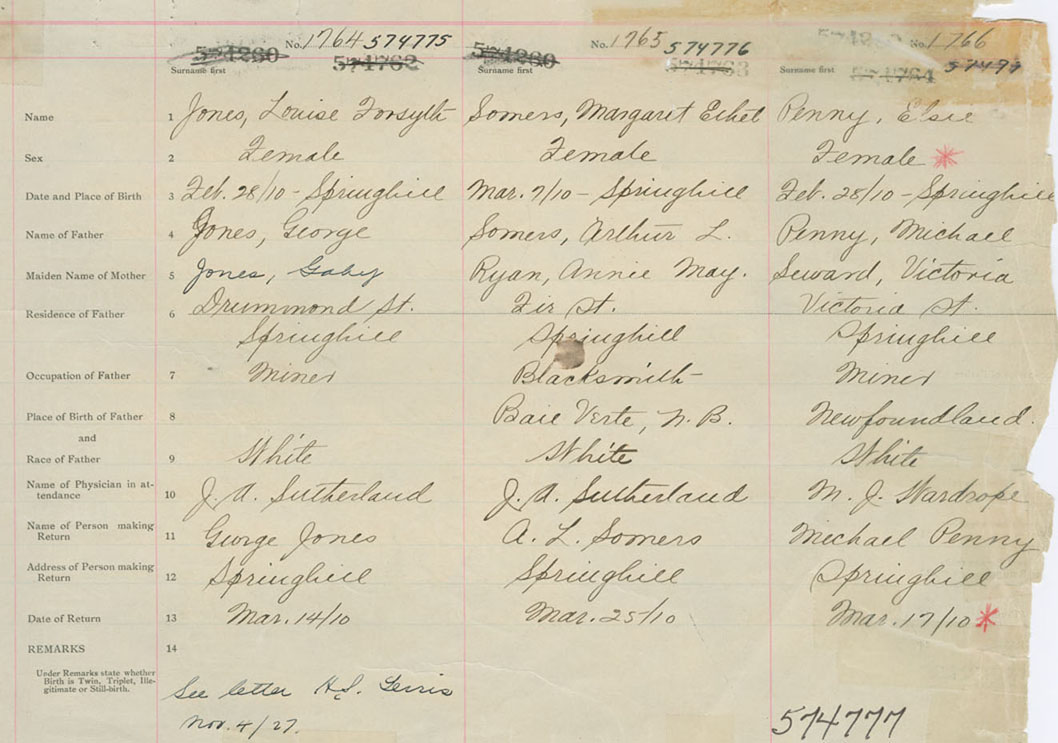 No. 1764 574775 No. 1765 574776 No. 1766
574260 574762 574260 574763 574764
Surname first Surname first Surname first
Name 1 Jones, Louise Forsyth Somers, Margaret Ethel Penny, Elsie
Sex 2 Female Female Female *
Date and Place of Birth 3 Feb. 28/10 - Springhill Mar. 7/10 - Springhill Feb. 28/10 - Springhill
Name of Father 4 Jones, George Somers, Arthur L. Penny, Michael
Maiden Name of Mother 5 Jones, Gaby Ryan, Annie May. Seward, Victoria
Residence of Father 6 Drummond St. Fir St. Victoria St.
Springhill Springhill Springhill
Occupation of Father 7 Miner Blacksmith Miner
Place of Birth of Father 8 Baie Verte, N.B. Newfoundland.
and
Race of Father 9 White White White
Name of Physician in at-
tendance 10 J. A. Sutherland J. A. Sutherland M. J. Wardrope
Name of Person making
Return 11 George Jones A. L. Somers Michael Penny
Address of Person making
Return 12 Springhill Springhill Springhill
Date of Return 13 Mar. 14/10 Mar. 25/10 Mar. 17/10 *
REMARKS 14
Under Remarks state whether
Birth is Twin, Triplet, Ille-
gitimate or Still-birth.
See letter
Nov. 4/27.
574777